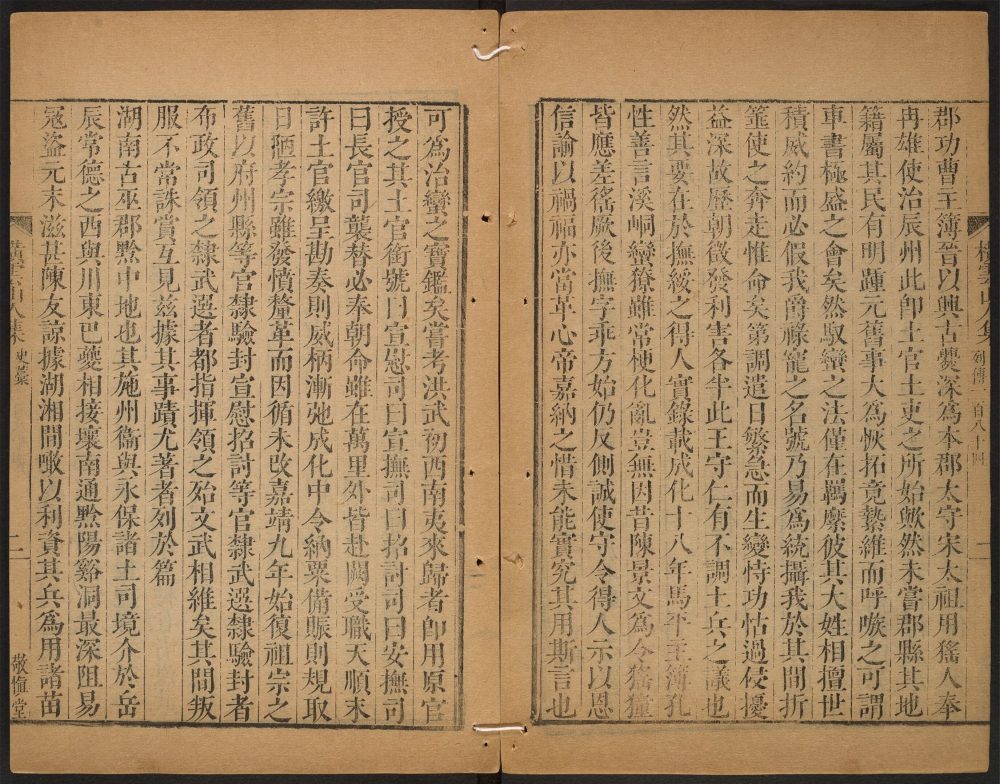 郡功曹主簿晉以興古爨深為本郡太守宋太祖用猺人奉
冉雄使治辰州此卽土官土吏之所始歟然未嘗郡縣其地
籍屬其民有明踵元舊事大為恢拓竟縶維而呼嗾之可謂
車書極盛之會矣然馭蠻之法僅在羈縻彼其大姓相擅世
積威約而必假我爵祿寵之名號乃易為統攝我於其間折
箠使之奔走惟命矣第調遣日繁急而生變恃功怙過侵擾
益深故歷朝徵發利害各半此王守仁有不調土兵之議也
然其要在於撫綏之得人實錄載成化十八年馬平主簿孔
性善言溪峒蠻獠雖常梗化亂豈無因昔陳景文為令猺獞
皆應差徭厥後撫字乖方始仍反側誠使守令得人示以恩
信諭以禍福亦當革心帝嘉納之惜未能實究其用斯言也
列傳一百八十四
一
可為治蠻之寶鑑矣嘗考洪武初西南夷來歸者卽用原官
授之其土官銜號曰宣慰司曰宣撫司曰招討司曰安撫司
曰長官司襲替必奉朝命雖在萬里外皆赴闕受職天順末
許土官繳呈勘奏則威柄漸弛成化中令納粟備賑則規取
日陋孝宗雖發憤釐革而因循未改嘉靖九年始復祖宗之
舊以府州縣等官隸驗封宣慰招討等官隸武選隸驗封者
布政司領之隸武選者都指揮領之殆文武相維矣其間叛
服不常誅賞互見茲據其事蹟尤著者列於篇
湖南古巫郡黔中地也其施州衛與永保諸土司境介於岳
辰常德之西與川東巴夔相接壤南通黔陽谿洞最深阻易
寇盜元末滋甚陳友諒據湖湘間啖以利資其兵為用諸苗
橫雲山人集 史藁
二
敬慎堂